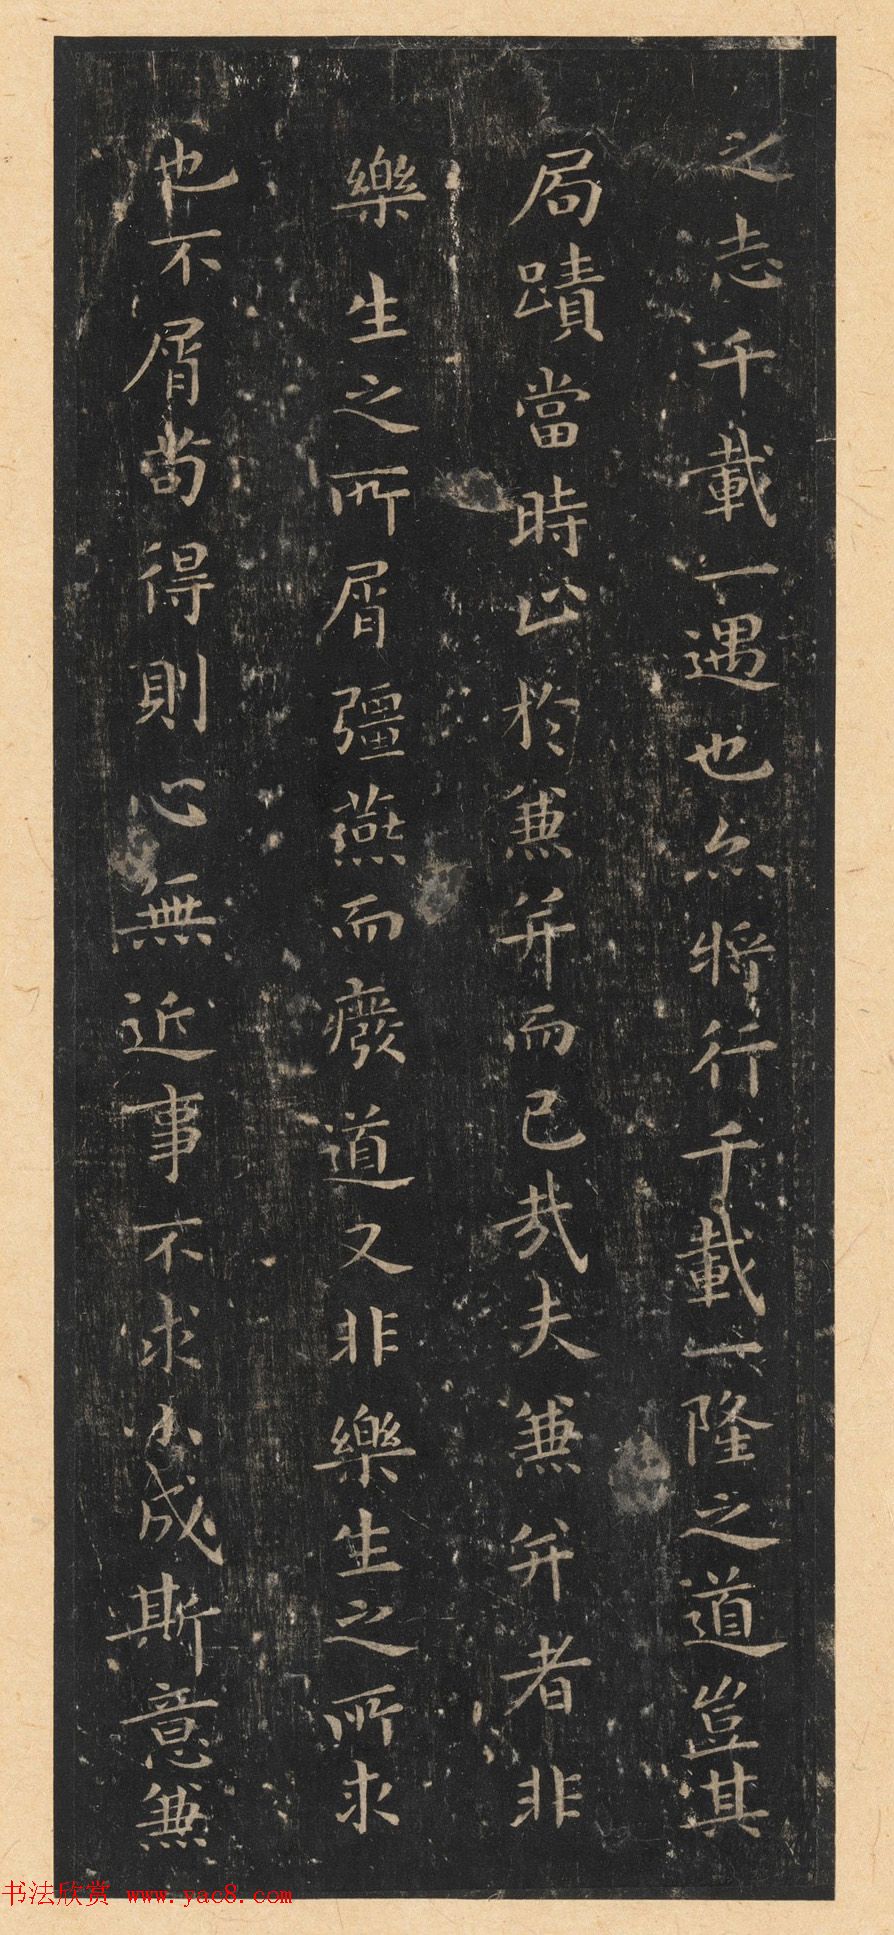 之志千載一遇也亦將行千載一隆之道豈其
局蹟當時止於兼并而已哉夫兼并者非
樂生之所屑彊燕而廢道又非樂生之所求
也不屑苟得則心無近事不求小成斯意兼
书法欣赏 www.yac8.com